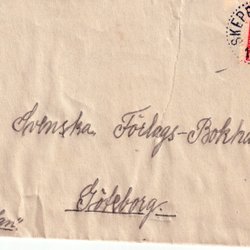 SKEP
Svenska Förlags-Bokha
Göteborg.
an"